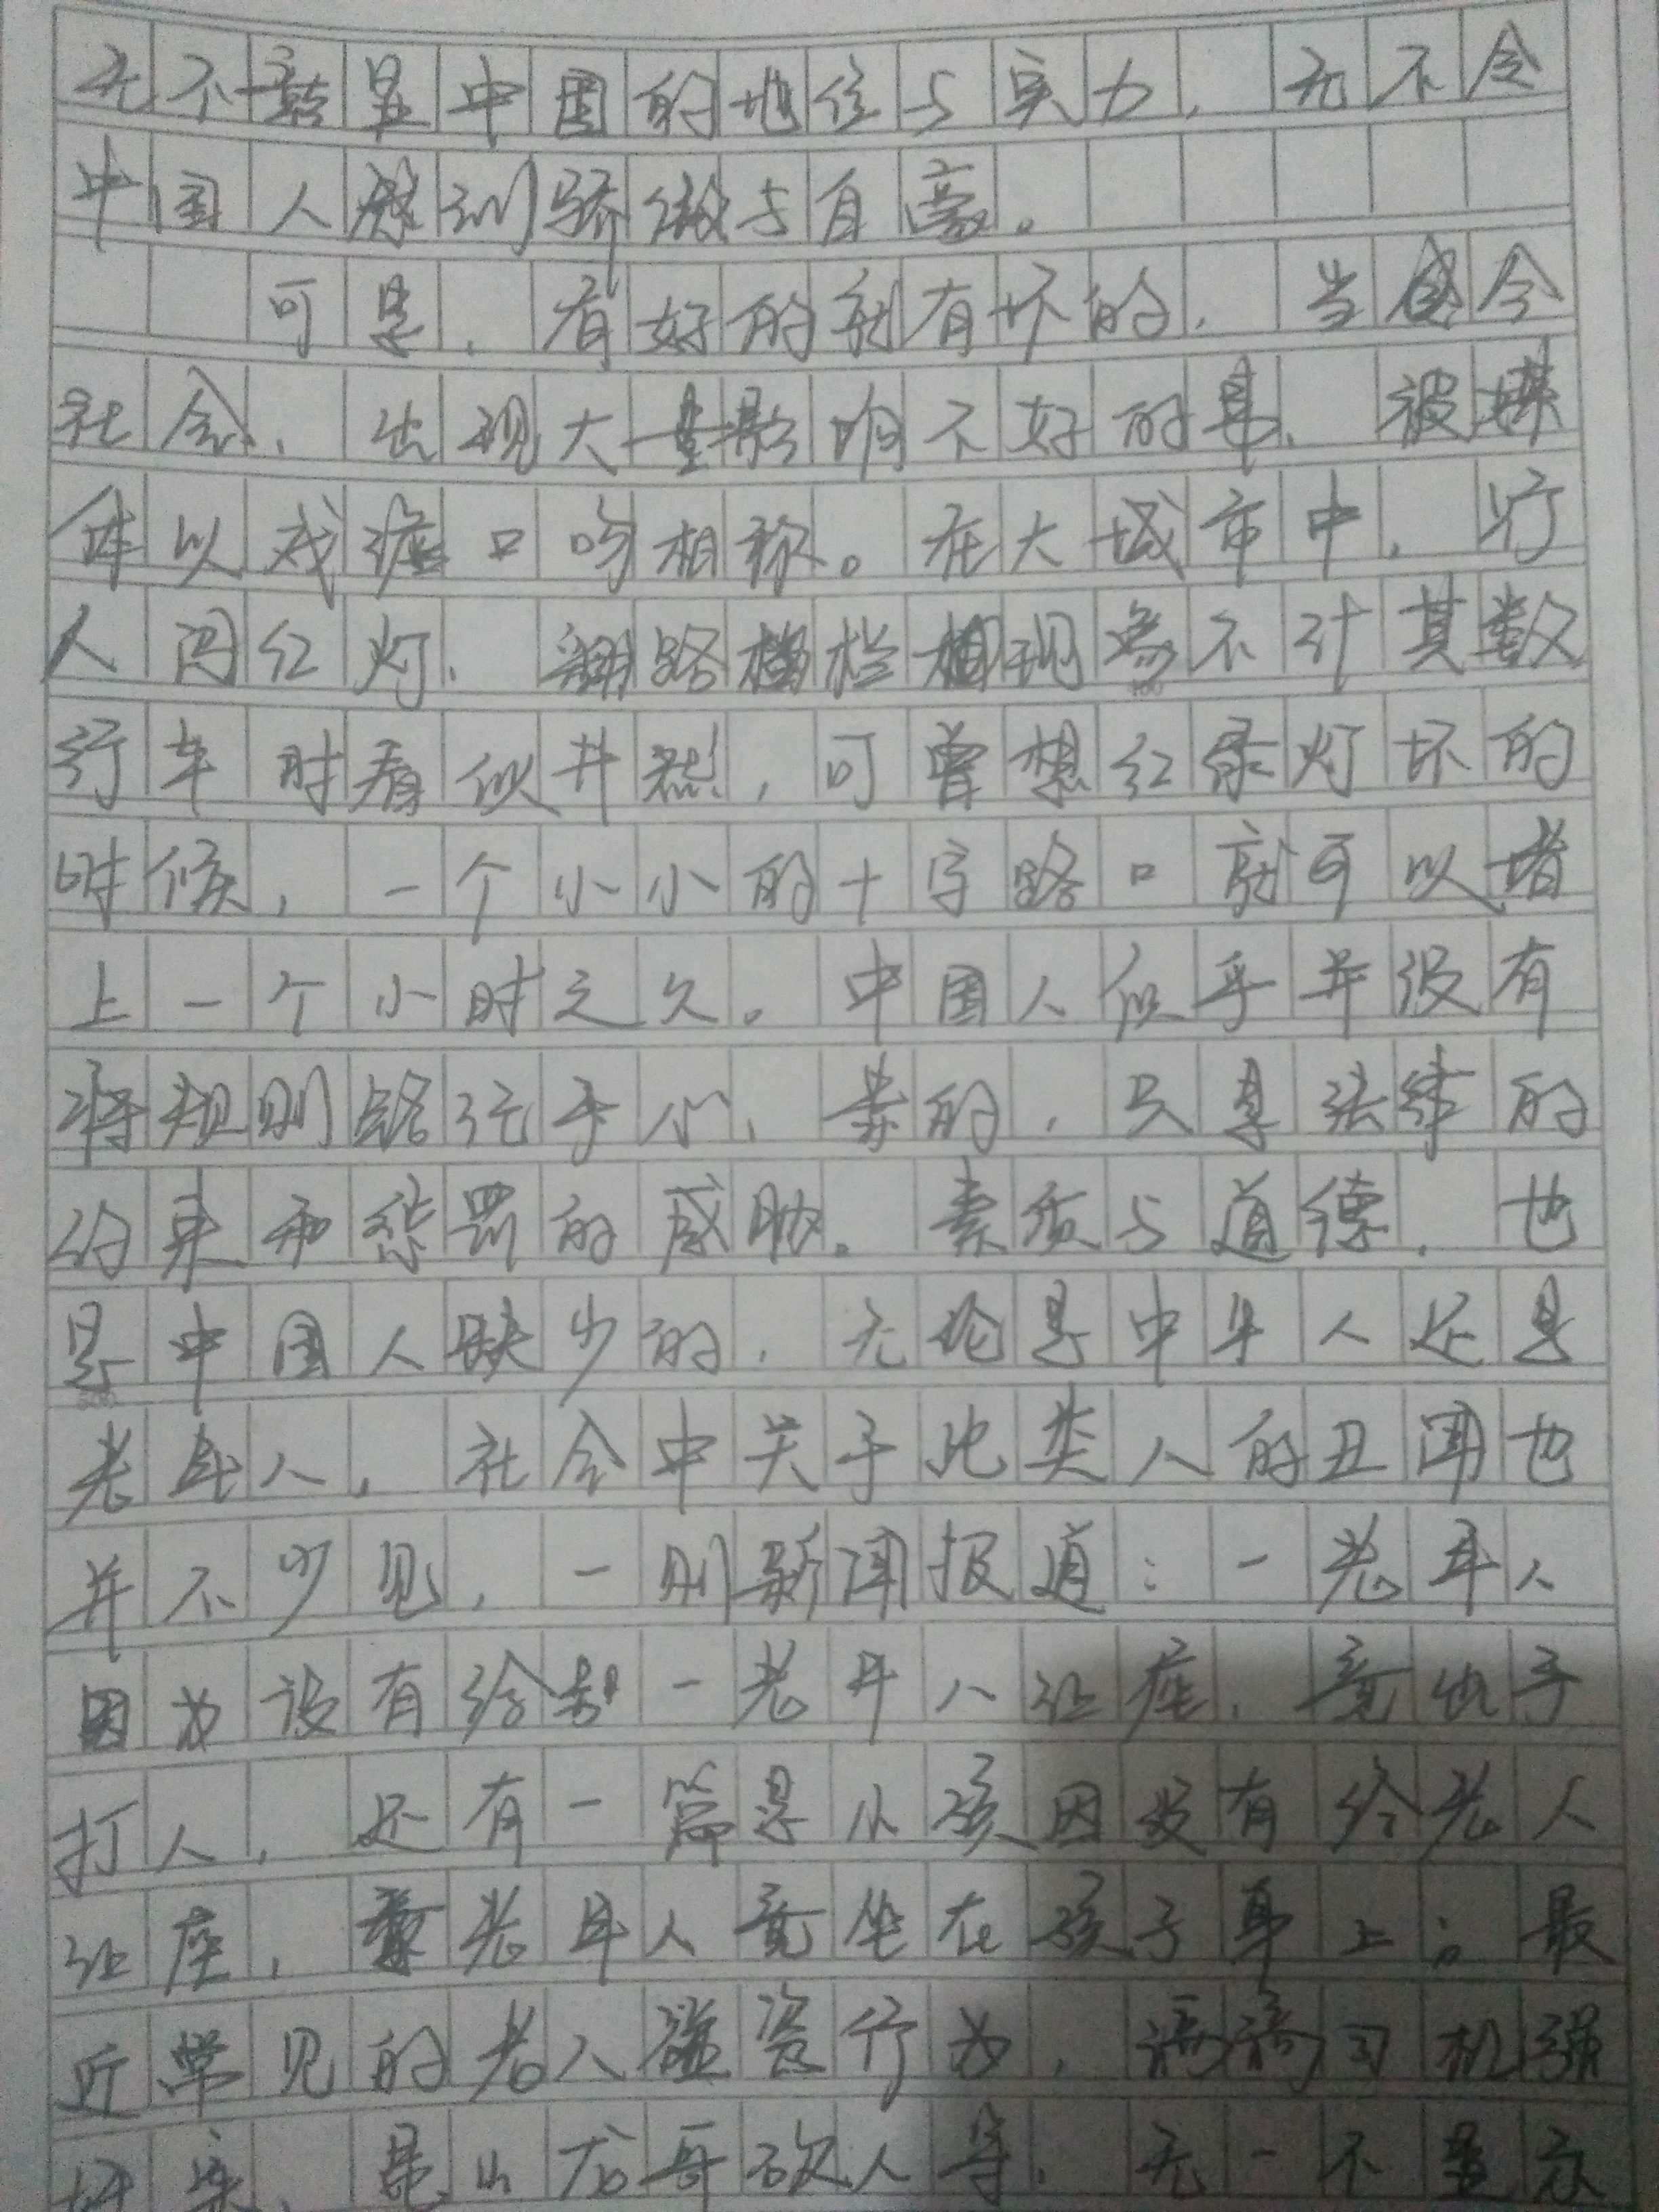 无不彰显中国的地位与实力，无不令
中国人感到骄傲与自豪。
可是，有好的就有坏的，当今
社会，出现大量影响不好的事，被媒
体以戏谑口吻相称。在大城市中，行
人闯红灯，翻路栏现象不计其数
行车时看似井然，可曾想红绿灯坏的
时候，一个小小的十字路口就可以堵
上一个小时之久。中国人似乎并没有
将规则铭记于心，靠的，只是法律的
约束和惩罚的威胁。素质与道德，也
是中国人缺少的，无论是中年人还是
老年人，社会中关于此类人的丑闻也
并不少见，一则新闻报道：一老年人
因为没有给一老年人让座，竟出手
打人，还有一篇是小孩因没有给老人
让座，老年人竟坐在孩子身上；最
近常见的老人碰瓷行为，滴滴司机强
奸案，昆山龙哥砍人等，无一不是在